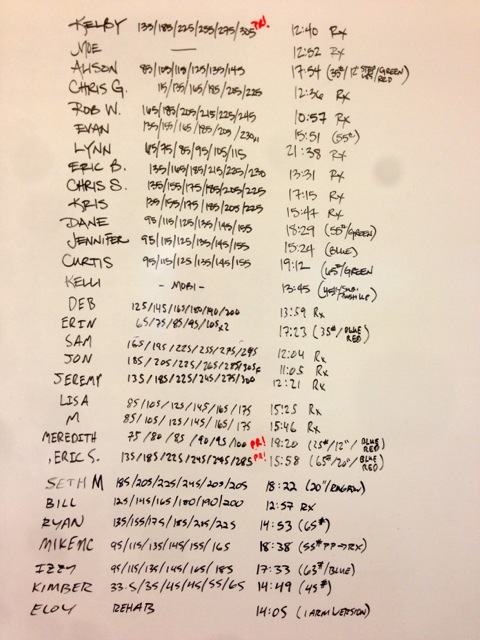 KELBY 135/185/225/255/275/305 PR! 12:40 Rx
MOE — 12:52 Rx
ALISON 85/105/115/125/135/145 17:54 (35#/12" STEP UPS/GREEN RED)
CHRIS G. 115/135/165/185/205/225 12:36 Rx
ROB W. 165/185/205/215/225/245 10:57 Rx
EVAN 135/155/165/185/205/230 15:51 (55#)
LYNN 65/75/85/95/105/115 21:38 Rx
ERIC B. 135/165/185/215/225/230 13:31 Rx
CHRIS S. 135/155/175/185/205/225 17:15 Rx
KRIS 135/155/175/185/205/225 15:47 Rx
DANE 95/115/125/135/145/155 18:29 (55#/GREEN)
JENNIFER 95/115/125/135/145/155 15:24 (BLUE)
CURTIS 95/115/125/135/145/155 19:12 (65#/GREEN
KELLI - MOBI - 13:45 PUSH UP)
DEB 125/145/165/180/190/200 13:59 Rx
ERIN 65/75/85/95/105x2 17:23 (35#/BLUE RED)
SAM 165/195/225/255/275/295 12:04 Rx
JON 185/205/225/265/285/305F 11:05 Rx
JEREMY 135/185/225/245/275/300 12:21 Rx
LISA 85/105/125/145/165/175 15:25 Rx
M 85/105/125/145/165/175 15:46 Rx
MEREDITH 75/80/85/90/95/100 PR! 18:20 (25#/12"/BLUE RED)
ERIC S. 135/185/225/245/265/285 PR! 15:58 (65#/20"/BLUE RED)
SETH M 185/205/225/245/205/205 18:22 (20"/
BILL 125/145/165/180/190/200 12:57 Rx
RYAN 135/155/175/185/215/225 14:53 (65#)
MIKE MC 95/115/135/145/155/165 18:38 (55# PP→RX)
IZZY 95/115/135/145/165/185 17:33 (63#/BLUE)
KIMBER 33.5/35/45/45/55/65 14:49 (45#)
ELOY REHAB 14:05 (1 ARM VERSION)